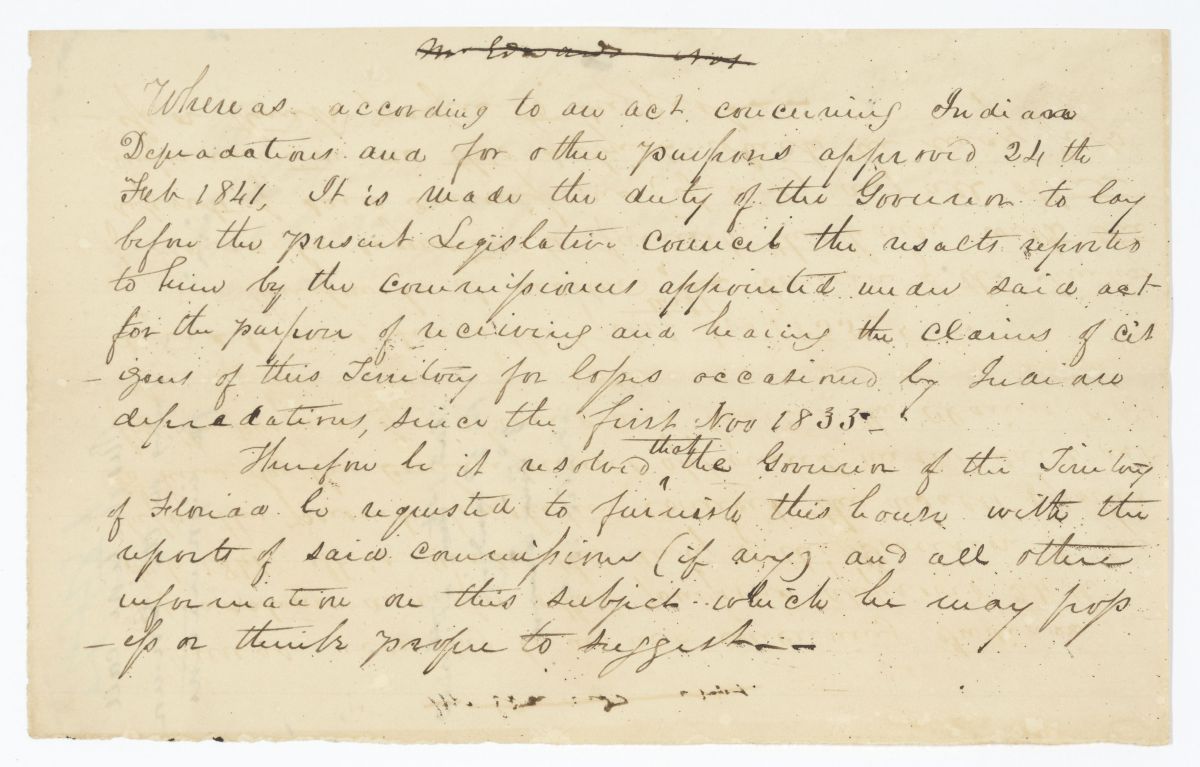 Mr Edwards
Whereas according to an act concerning Indian
Depradations and for other purposes approved 24th
Feb 1841, It is made the duty of the Governor to lay
before the present Legislative Council the results reported
to him by the commissioners appointed under said act
for the purpose of receiving and hearing the claims of cit
-izens of this Territory for losses occasioned by Indian
depredations, since the first Nov 1835-
that
Therefore be it resolved the Governor of the Territory
of Florida be requested to furnish this house with the
reports of said commissions (if any) and all other
information on this subject which he may poss
-ess or think proper to suggest--